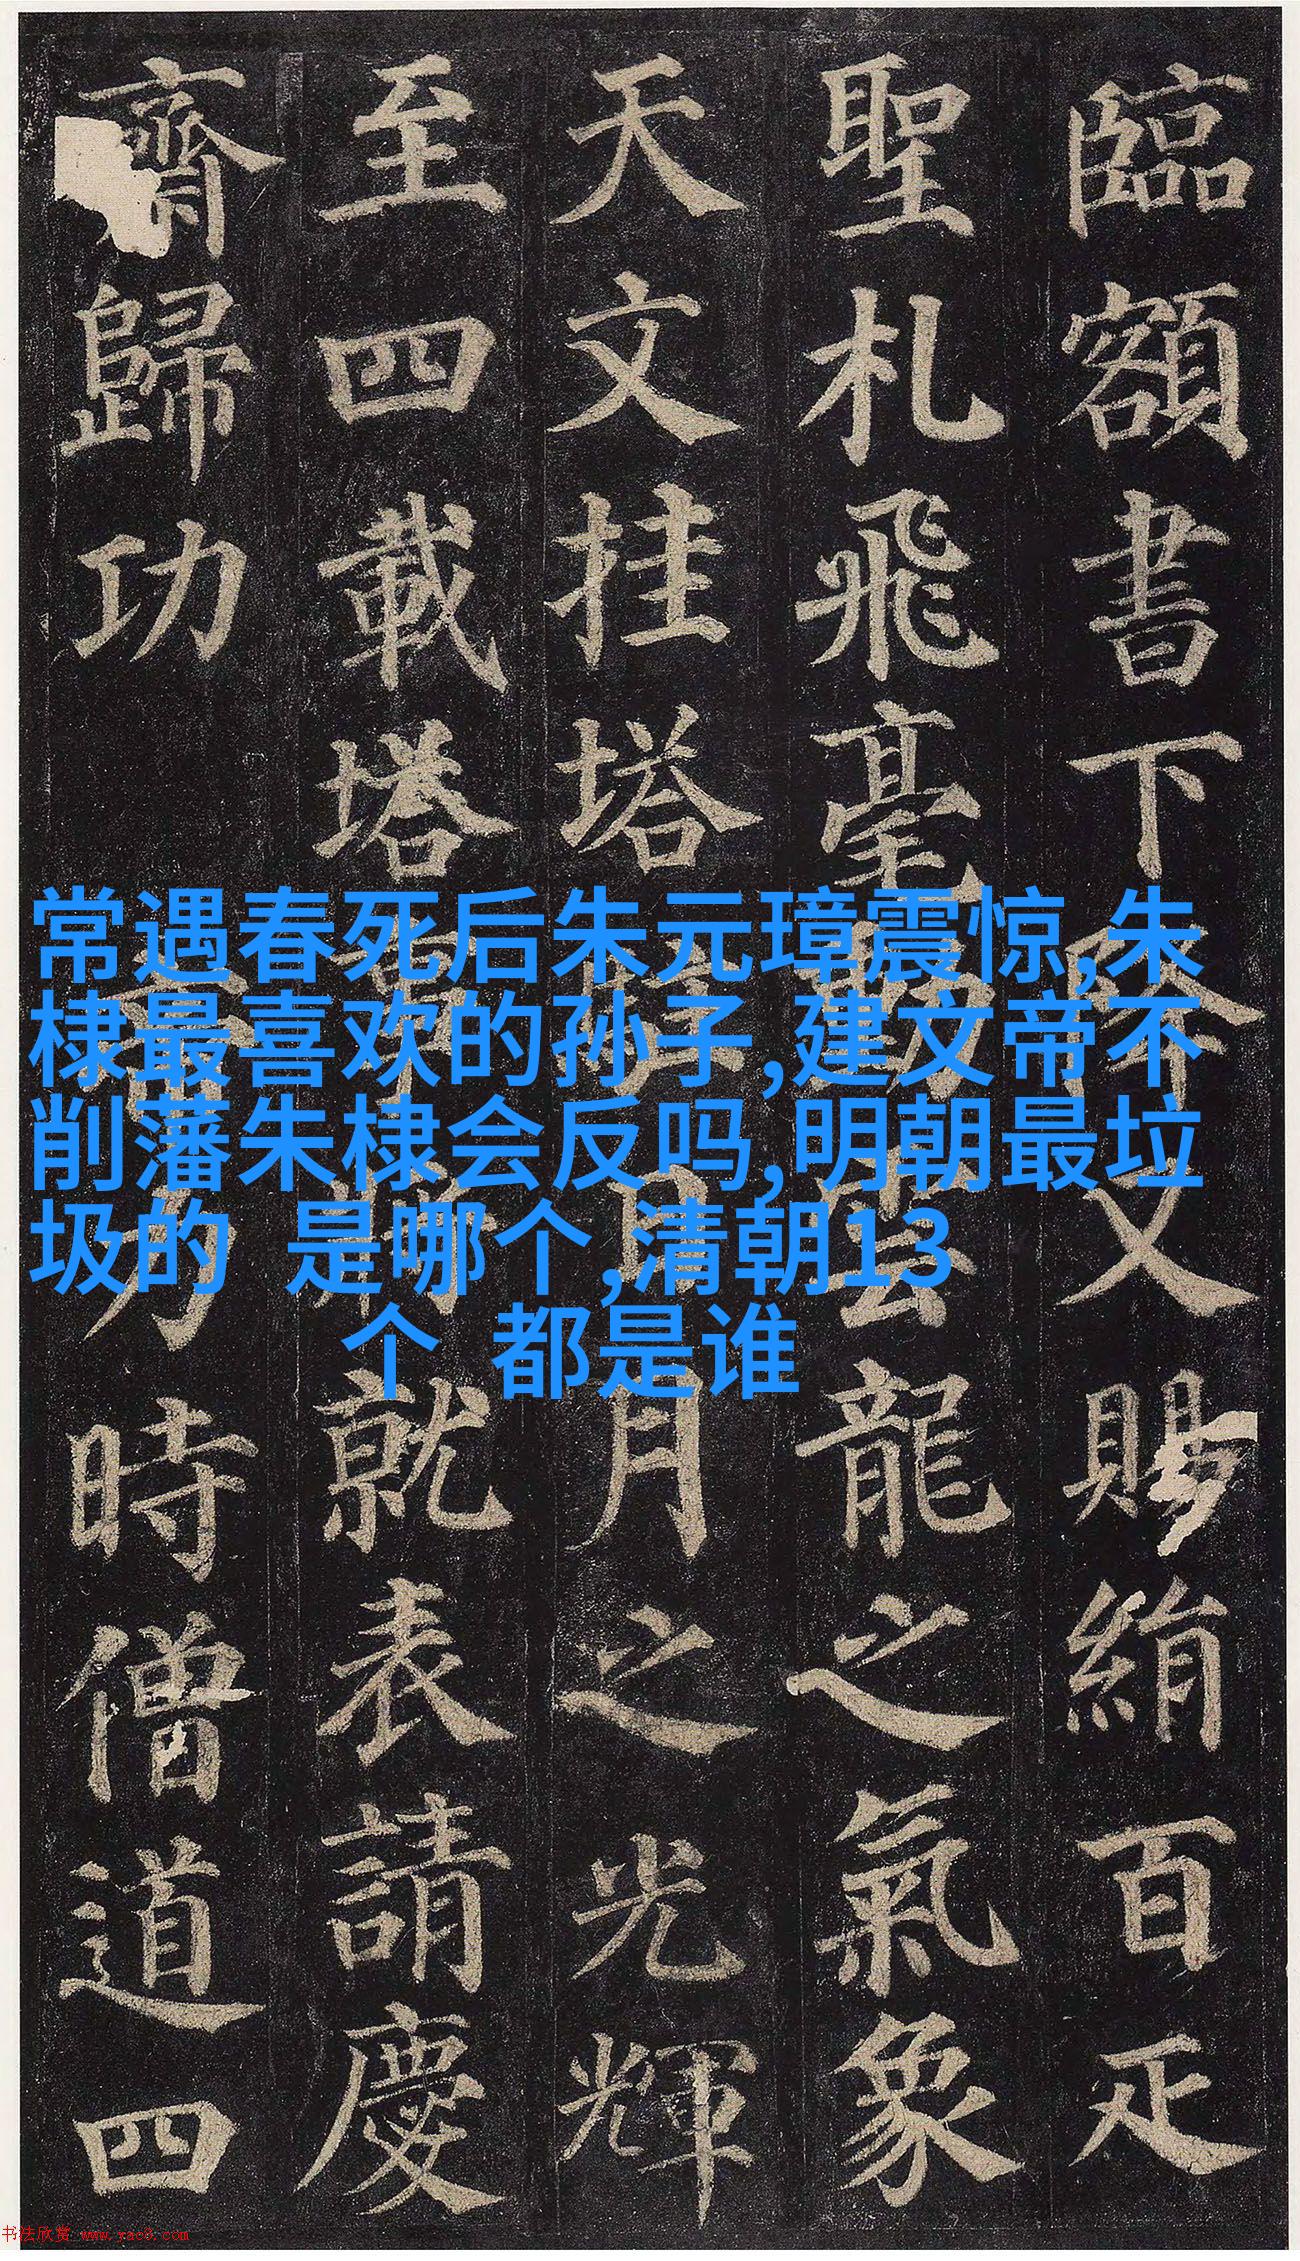 臨額書下降又賜絹百疋
聖札飛毫動雲龍之氣象
天文挂塔駐日月之光輝
至四載塔事將就表請慶
齋歸功 帝力時僧道四
常遇春死后朱元璋震惊,朱
棣最喜欢的孙子,建文帝不
削藩朱棣会反吗,明朝最垃
圾的 是哪个,清朝13
个 都是谁
书法欣赏 www.yac8.com